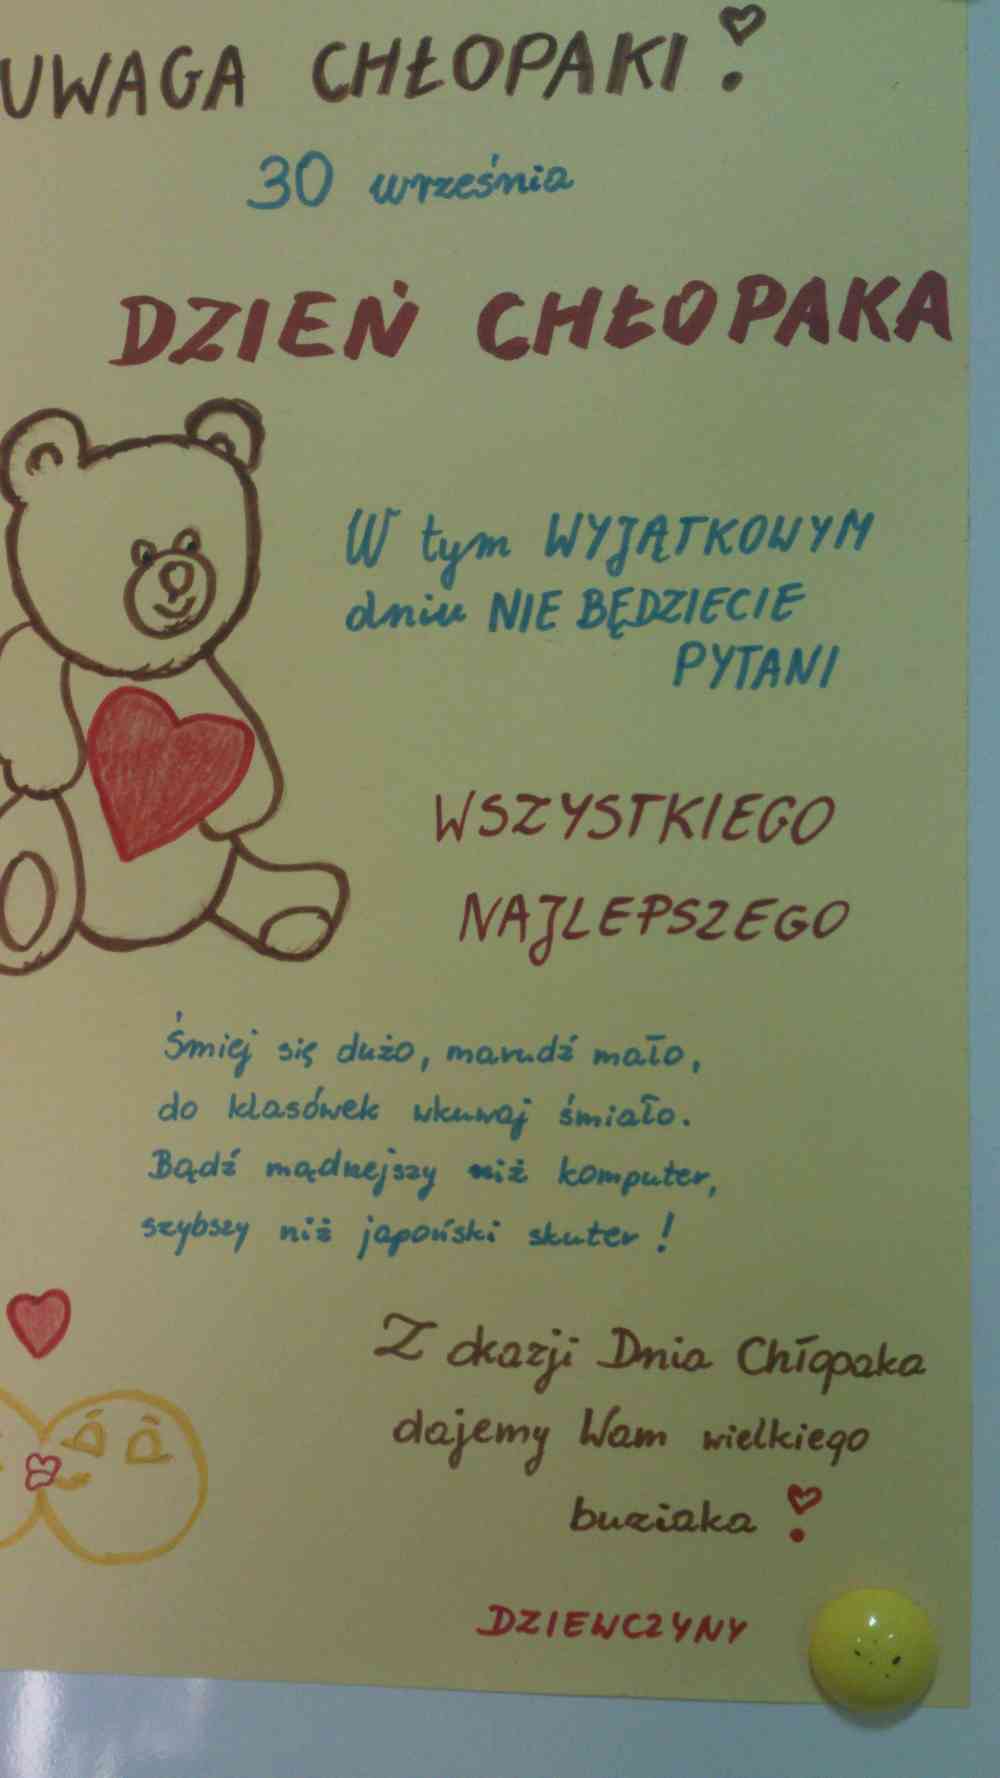 UWAGA CHŁOPAKI!
30 września
DZIEŃ CHŁOPAKA
W tym WYJĄTKOWYM
dniu NIE BĘDZIECIE
PYTANI
WSZYSTKIEGO
NAJLEPSZEGO
Śmiej się dużo, marudź mało,
do klasówek wkuwaj śmiało.
Bądź mądrejszy niż komputer,
szybszy niż japoński skuter!
Z okazji Dnia Chłopaka
dajemy Wam wielkiego
buziaka!
DZIEWCZYNY